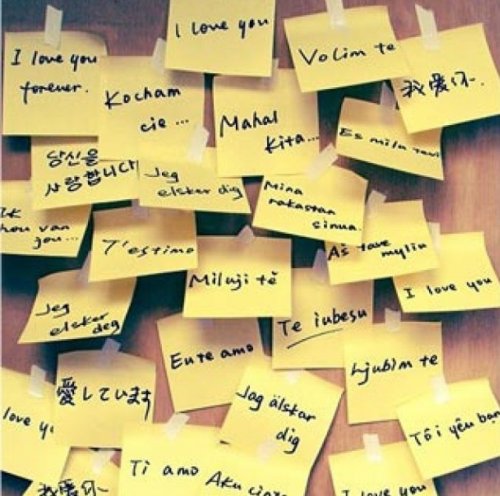 I love you
forever.
I love you
Volim te
我爱你.
Kocham
cie ...
Mahal
kita...
Es milu tevi
당신을
사랑합니다
Jeg
elsker dig
Mina
rakastan
sinua.
Ik
hou van
jou...
T'estimo
Aš tave
myliu
Miluji tě
I love you
Jeg
elsker deg
Te iubesu
Eu te amo
Ljubim te
愛しています
Jag älskar
dig
love
Tôi yêu
Ti amo
Aku
I love you
我爱你